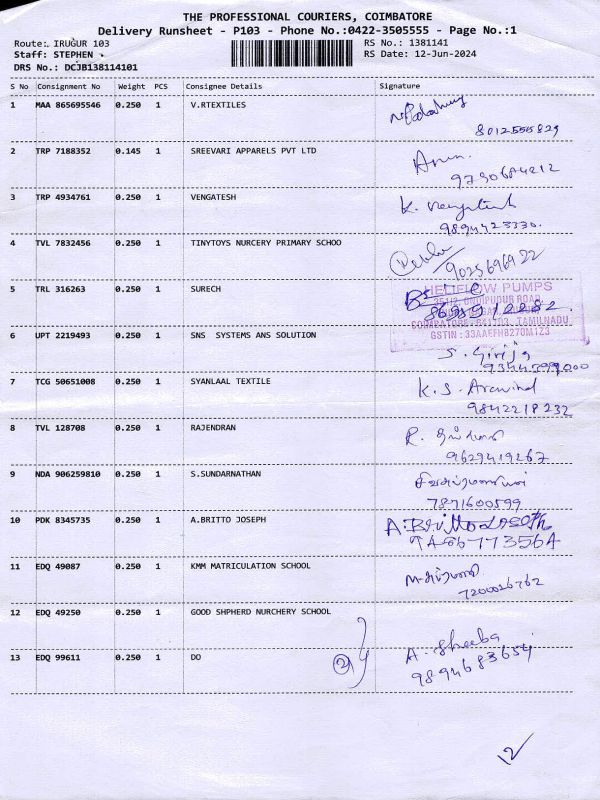 THE PROFESSIONAL COURIERS, COIMBATORE
Delivery Runsheet - P103 - Phone No.:0422-3505555 - Page No.:1
Route: IRUGUR 103 RS No.: 1381141
Staff: STEPHEN RS Date: 12-Jun-2024
DRS No.: DCJB138114101
S No Consignment No Weight PCS Consignee Details Signature
1 MAA 865695546 0.250 1 V.RTEXTILES
8012555829
2 TRP 7188352 0.145 1 SREEVARI APPARELS PVT LTD
3 TRP 4934761 0.250 1 VENGATESH
9894423330.
4 TVL 7832456 0.250 1 TINYTOYS NURCERY PRIMARY SCHOO
9025696922
5 TRL 316263 0.250 1 SURECH
HELIFLOW PUMPS
GSTIN : 33AAEFH8270M1Z3
6 UPT 2219493 0.250 1 SNS SYSTEMS ANS SOLUTION
S. Girija
7 TCG 50651008 0.250 1 SYANLAAL TEXTILE
K.S. Aravind
9842218232
8 TVL 128708 0.250 1 RAJENDRAN
9629419267
9 NDA 906259810 0.250 1 S.SUNDARNATHAN
சிவசுப்ரமணியன்
7871600599
10 PDK 8345735 0.250 1 A.BRITTO JOSEPH
A.Britto Joseph
9486773564
11 EDQ 49087 0.250 1 KMM MATRICULATION SCHOOL
7200026762
12 EDQ 49250 0.250 1 GOOD SHPHERD NURCHERY SCHOOL
A. Sheeba
13 EDQ 99611 0.250 1 DO
9894683654
12